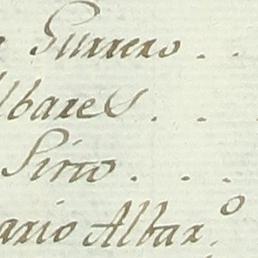 Gurrero . .
lbares . .
Sirco . . .
ario Albar.º